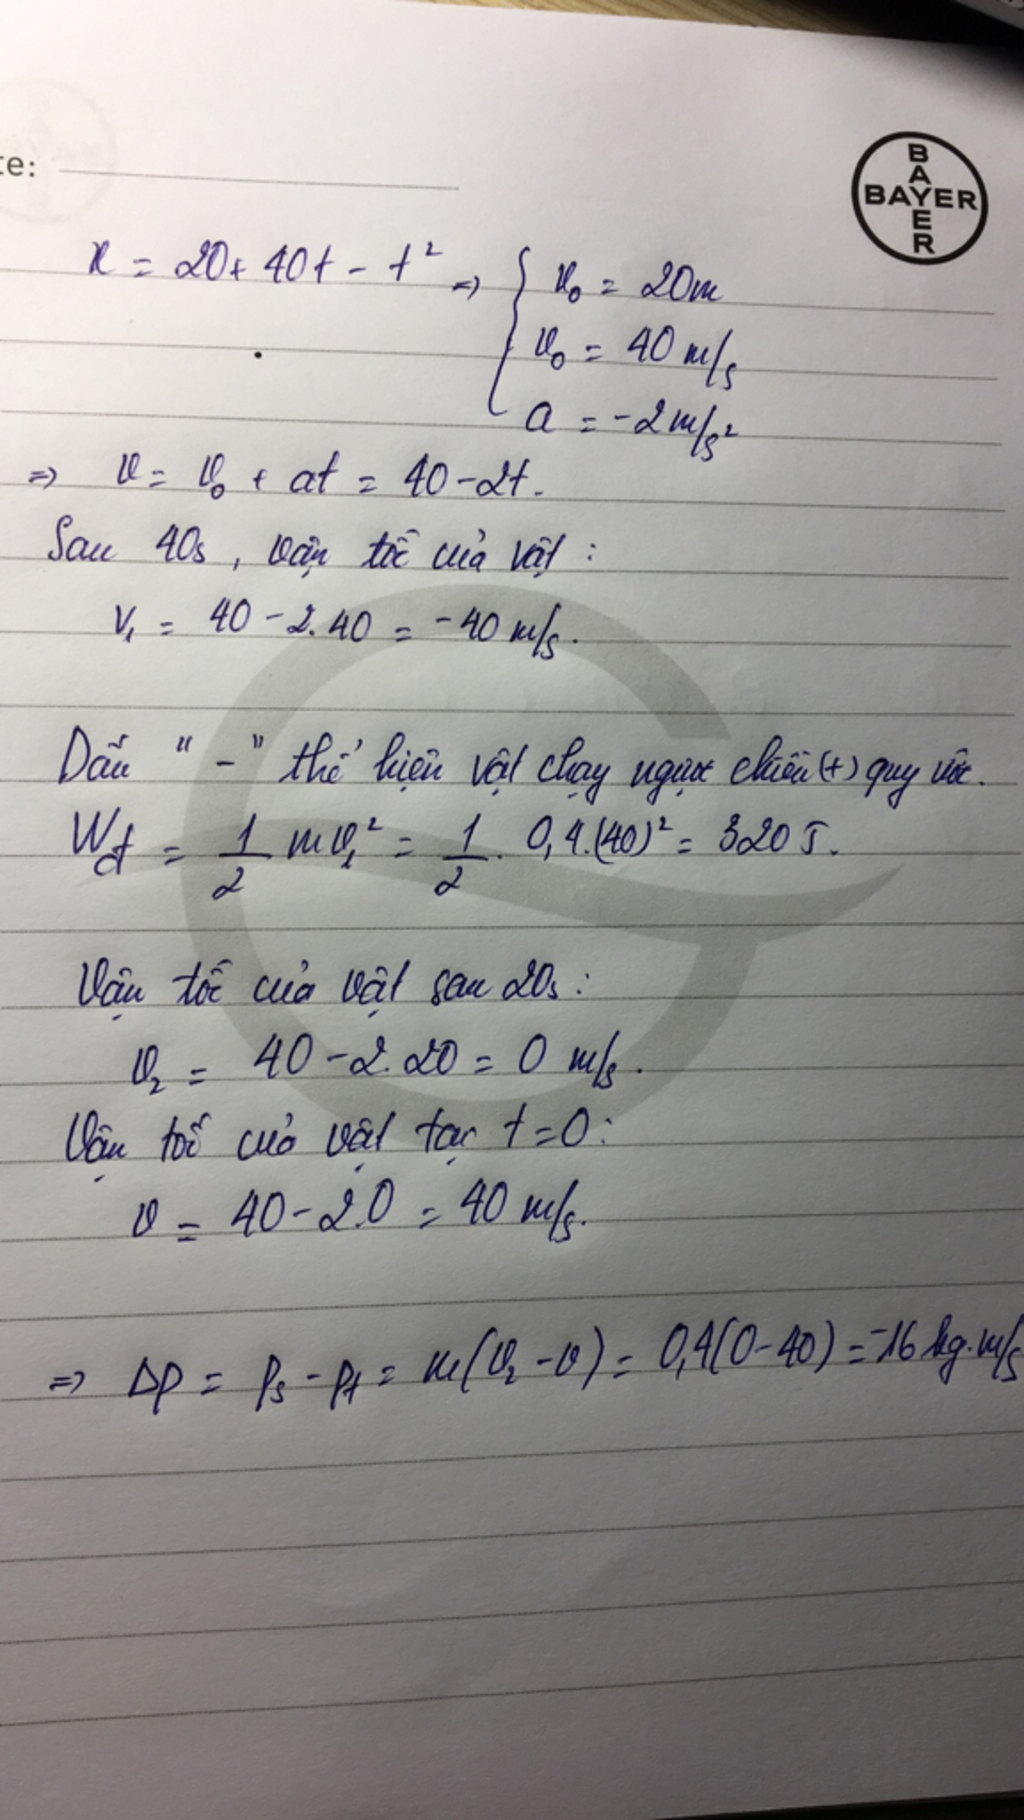 te:
BAYER
BAYER
x = 20 + 40t - t² => { x₀ = 20m
v₀ = 40 m/s
a = -2 m/s²
=> v = v₀ + at = 40 - 2t.
Sau 40s, vận tốc của vật :
V₁ = 40 - 2.40 = -40 m/s.
Dấu “-” thể hiện vật chạy ngược chiều (+) quy ước.
Wđ = 1/2 mv₁² = 1/2 . 0,4.(40)² = 320 J.
Vận tốc của vật sau 20s :
v₂ = 40 - 2.20 = 0 m/s.
Vận tốc của vật tại t = 0 :
v = 40 - 2.0 = 40 m/s.
=> Δp = pₛ - pₜ = m(v₂ - v) = 0,4(0 - 40) = -16 kg.m/s